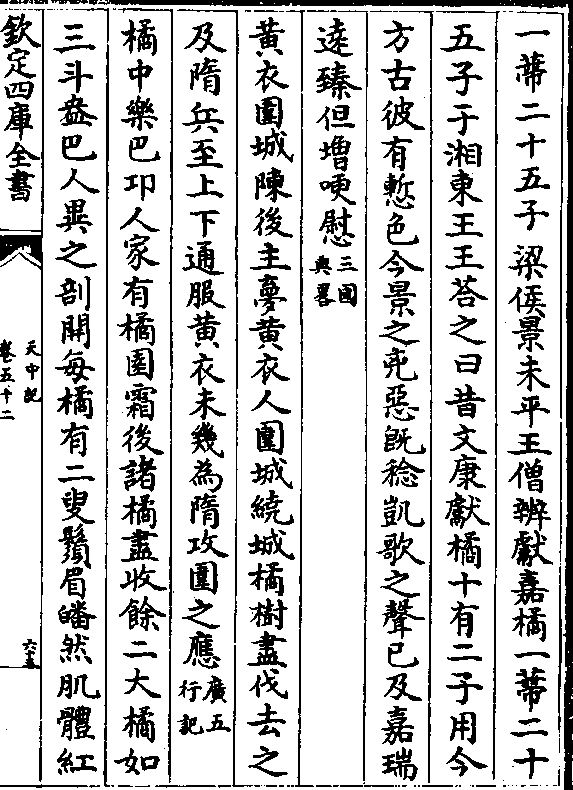 一蔕二十五子 梁侯景未平王僧辨獻嘉橘一蔕二十
五子于湘東王王荅之曰昔文康獻橘十有二子用今
方古彼有慙色今景之兇惡既稔凱歌之聲已及嘉瑞
逺臻但増哽慰三國典畧
黄衣圍城陳後主夢黄衣人圍城繞城橘樹盡伐去之
及隋兵至上下通服黄衣未幾為隋攻圍之應廣五行記
橘中樂巴邛人家有橘園霜後諸橘盡收餘二大橘如
三斗盎巴人異之剖開每橘有二叟鬚眉皤然肌體紅
欽定四庫全書
天中記
卷五十二
六十五